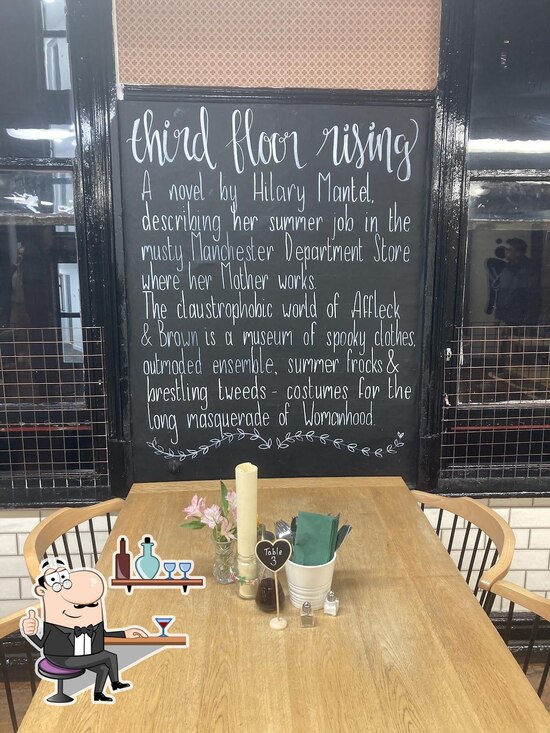 third floor rising
A novel by Hilary Mantel,
describing her summer job in the
musty Manchester Department Store
where her Mother works.
The claustrophobic world of Affleck
& Brown is a museum of spooky clothes.
outmoded ensemble, summer frocks &
brestling tweeds - costumes for the
long masquerade of Womanhood.
Table
3